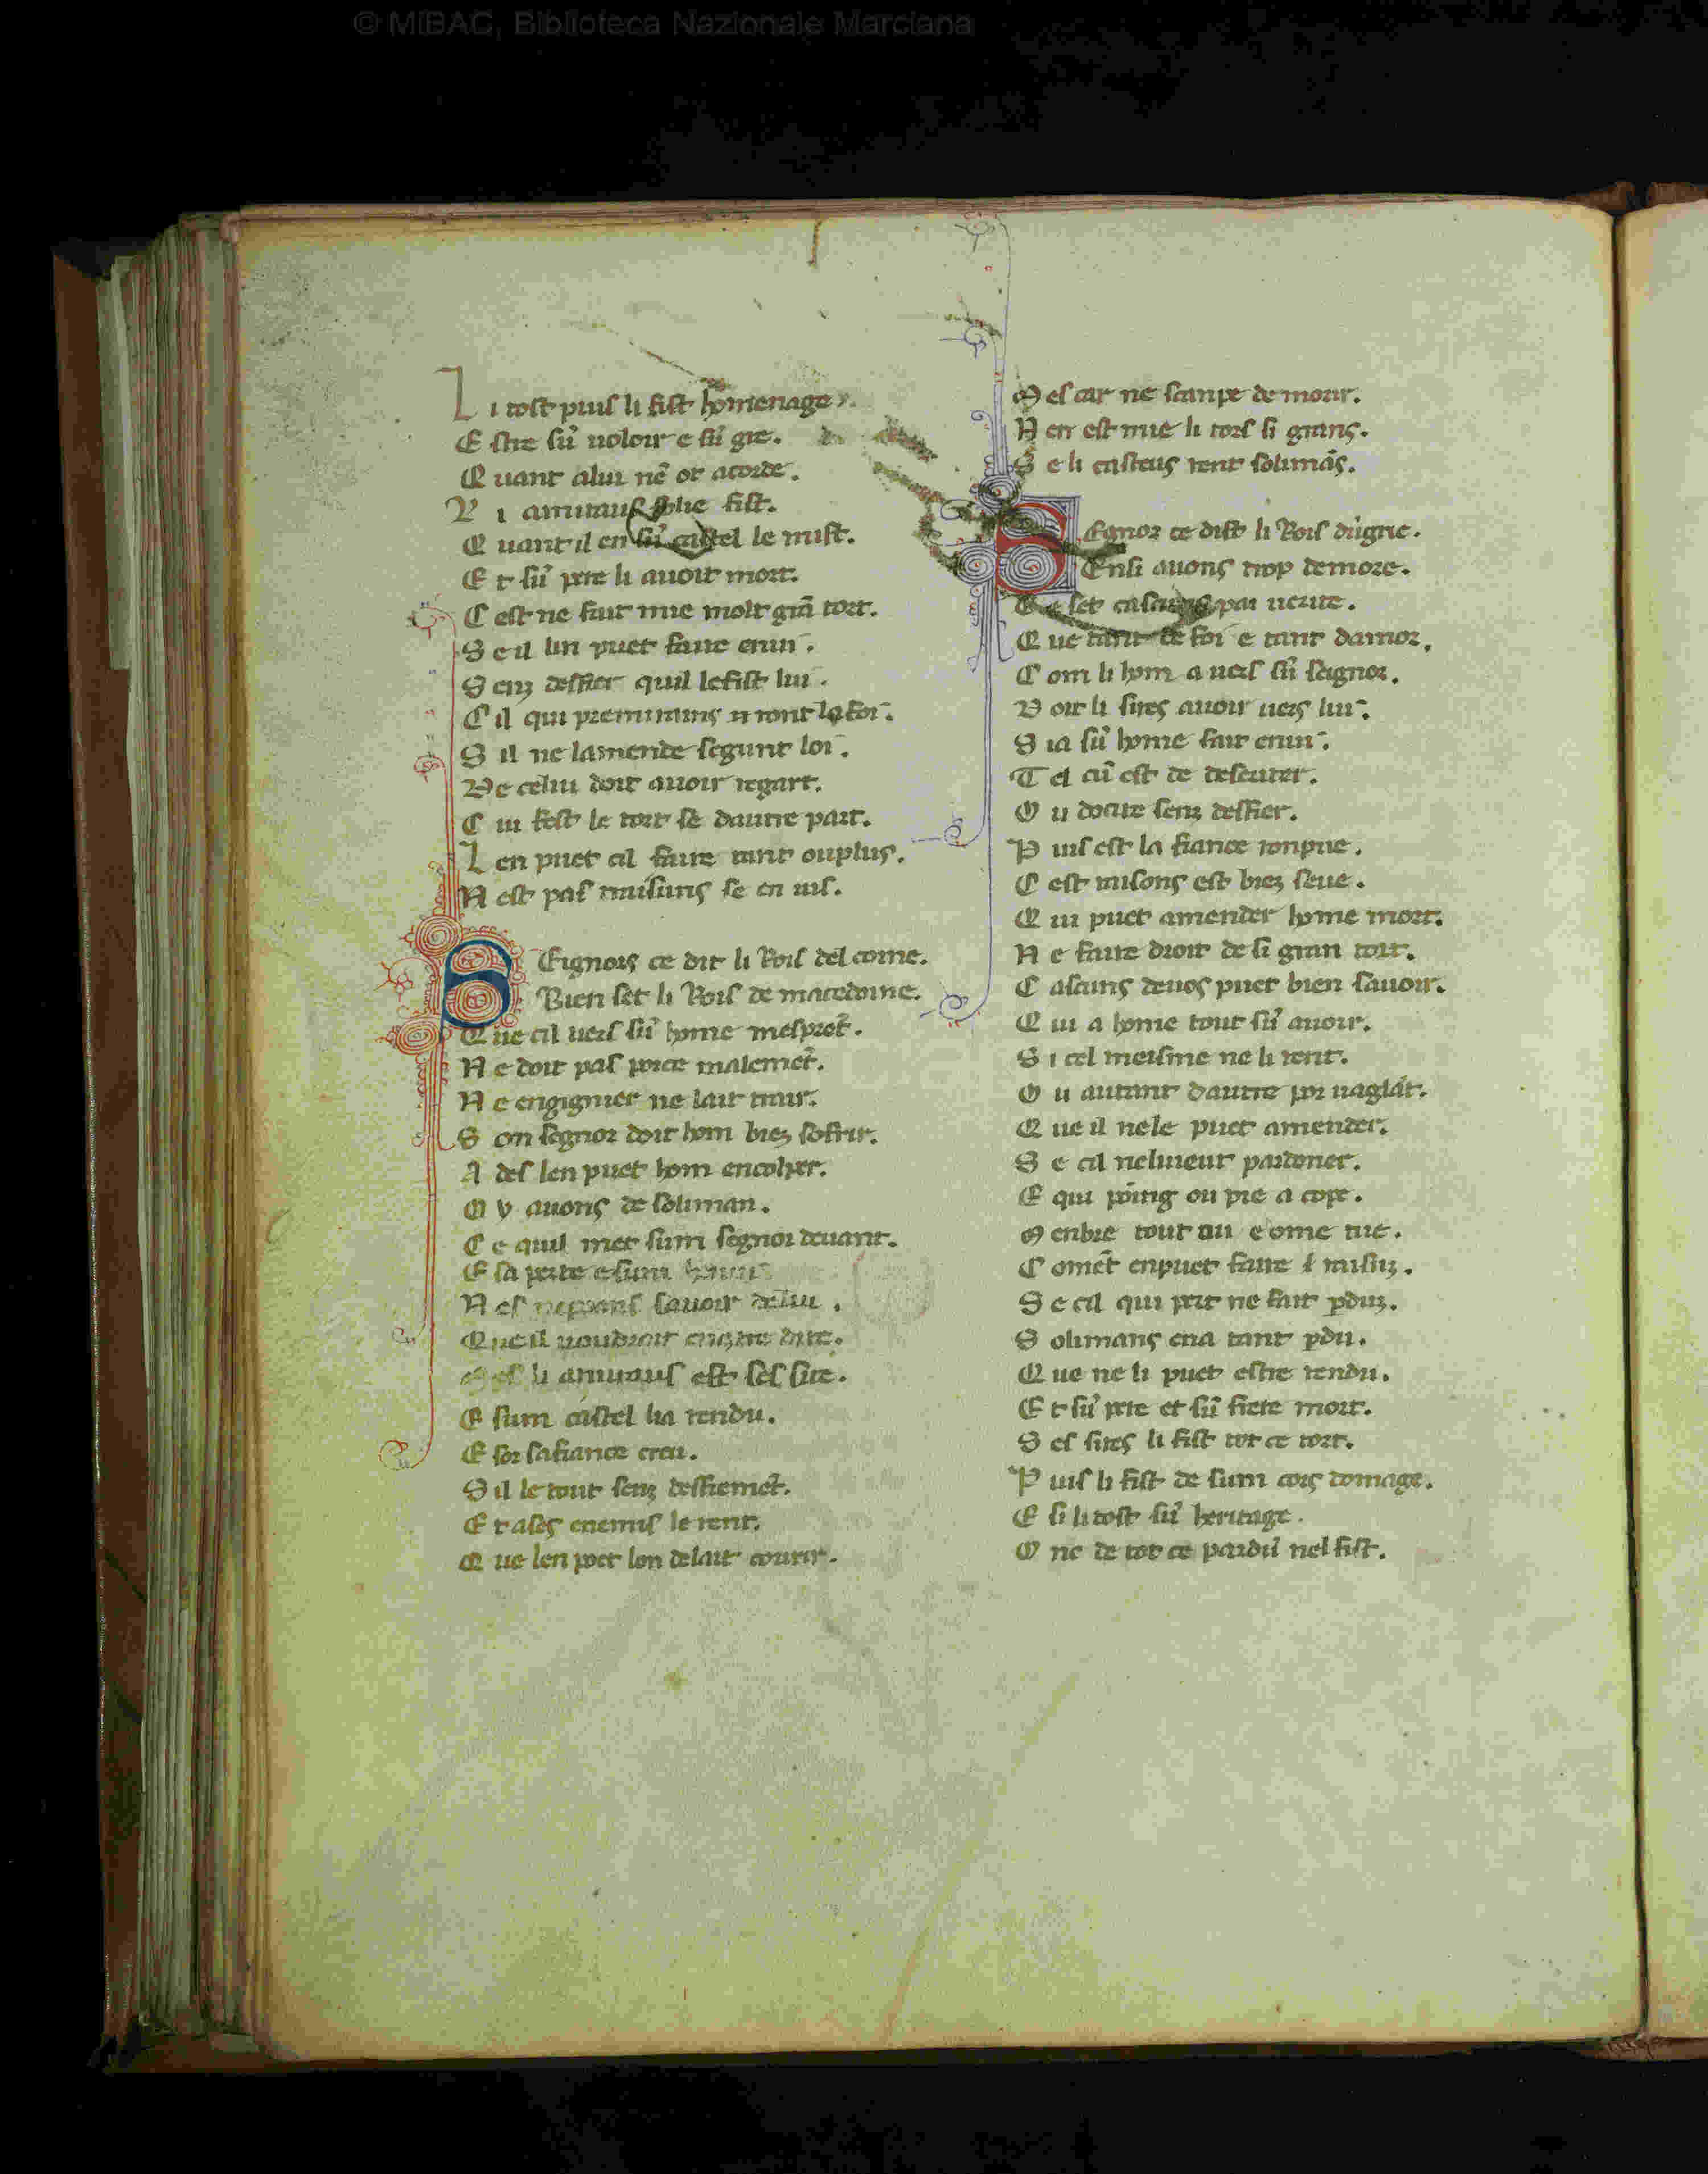 © MiBAC, Biblioteca Nazionale Marciana
L i tost puis li fist homenage.
E stre sũ uoloir e sũ gre.
Q uant alui nẽ ot acorde.
L i amiraus folie fist.
Q uant il en sũ castel le mist.
E t sũ pere li auoit mort.
C est ne fait mie molt grã tort.
S e il lin puet faire enui.
S enz deffier quil lefist lui.
C il qui premirains ront la foi.
S il ne lamende segunt loi.
De celui doit auoir regart.
C ui fest le tort se dautre part.
L en puet cil faire tant ouplus.
N est pas traisuns se en uis.
SEignors ce dit li Rois del come.
Bien set li Rois de macedoine.
Que cil uers sũ home mespret̃.
N e doit pas porce malemet̃.
N e engignier ne lait trair.
S on segnor doit hom biez sofrir.
A des len puet hom encolper.
O v auons de soliman.
C e quil met sum segnor deuant.
E sa perte e sum
N es savoir delui.
Que il uoudroit dire.
li amiraus est ses sire.
E sum castel lia rendu.
E sor safiance creu.
S il le tout senz deffiemet̃.
E t ases enemis le rent.
Q ue len poet lon delait courir.
M es car ne scanpe demorir.
N en est mie li tors si grans.
S e li casteus rent solimãs.
SEgnor ce dist li Rois dũgrie.
Ensi auons trop demore.
set par uerite.
Q ue tant de foi e tant damor.
C om li hom a uers sũ seignor.
D oit li sires auoir uers lui.
S ia sũ home fait enui.
T el cũ est de deseriter.
O u docire senz deffier.
P uis est la fiance ronpue.
C est traisons est biez seue.
Q ui puet amender home mort.
N e faire droit de si gran tort.
C ascuns deuos puet bien sauoir.
Q ui a home tout sũ auoir.
S i cel meisme ne li rent.
O u autant dautre por uaglãt.
Q ue il nele puet amender.
S e cil neluieut pardoner.
E qui poing ou pie a cope.
M enbre tout ou e ome tue.
C omẽt enpuet faire l traisuz.
S e cil qui pert ne fait pduz.
S olimans ena tant pdu.
Q ue ne li puet estre rendu.
E t sũ pere et sũ frere mort.
S es sires li fist tot ce tort.
P uis li fist de sum cors domage.
E si litost sũ heritage.
O nc de tot ce pardũ nel fist.